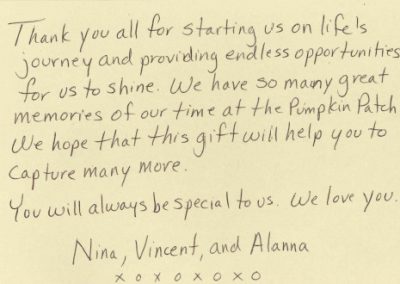 Thank you all for starting us on life's
journey and providing endless opportunities
for us to shine. We have so many great
memories of our time at the Pumpkin Patch
We hope that this gift will help you to
Capture many more.
You will always be special to us. We love you.
Nina, Vincent, and Alanna
x o x o x o x o